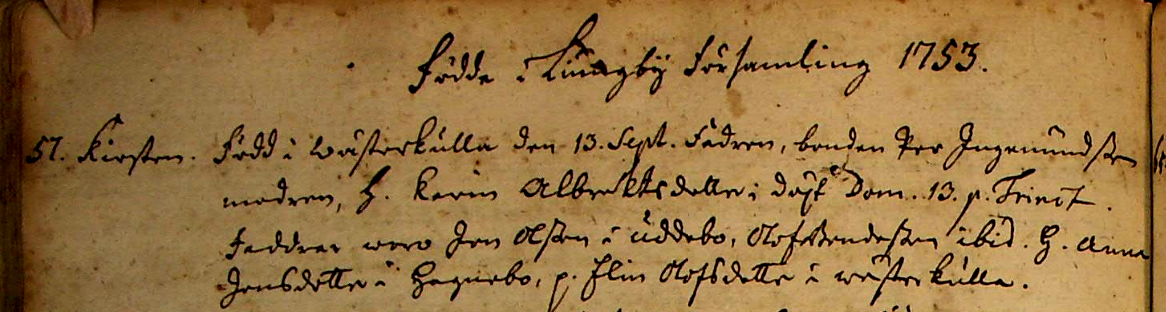 Födde i Liungby Församling 1753.
57. Kirsten. Född i Wästerkulla den 13. Sept. Fadren, bonden Per Ingemundsson
modren, H. Karin Albrektsdotter; döpt Dom. 13. p. Trinit.
Faddrar woro Jon Olsson i Uddebo, Olof Svendesson ibid. H. Anna
Jonsdotter i Hagnebo, p. Elin Olofsdotter i Wästerkulla.